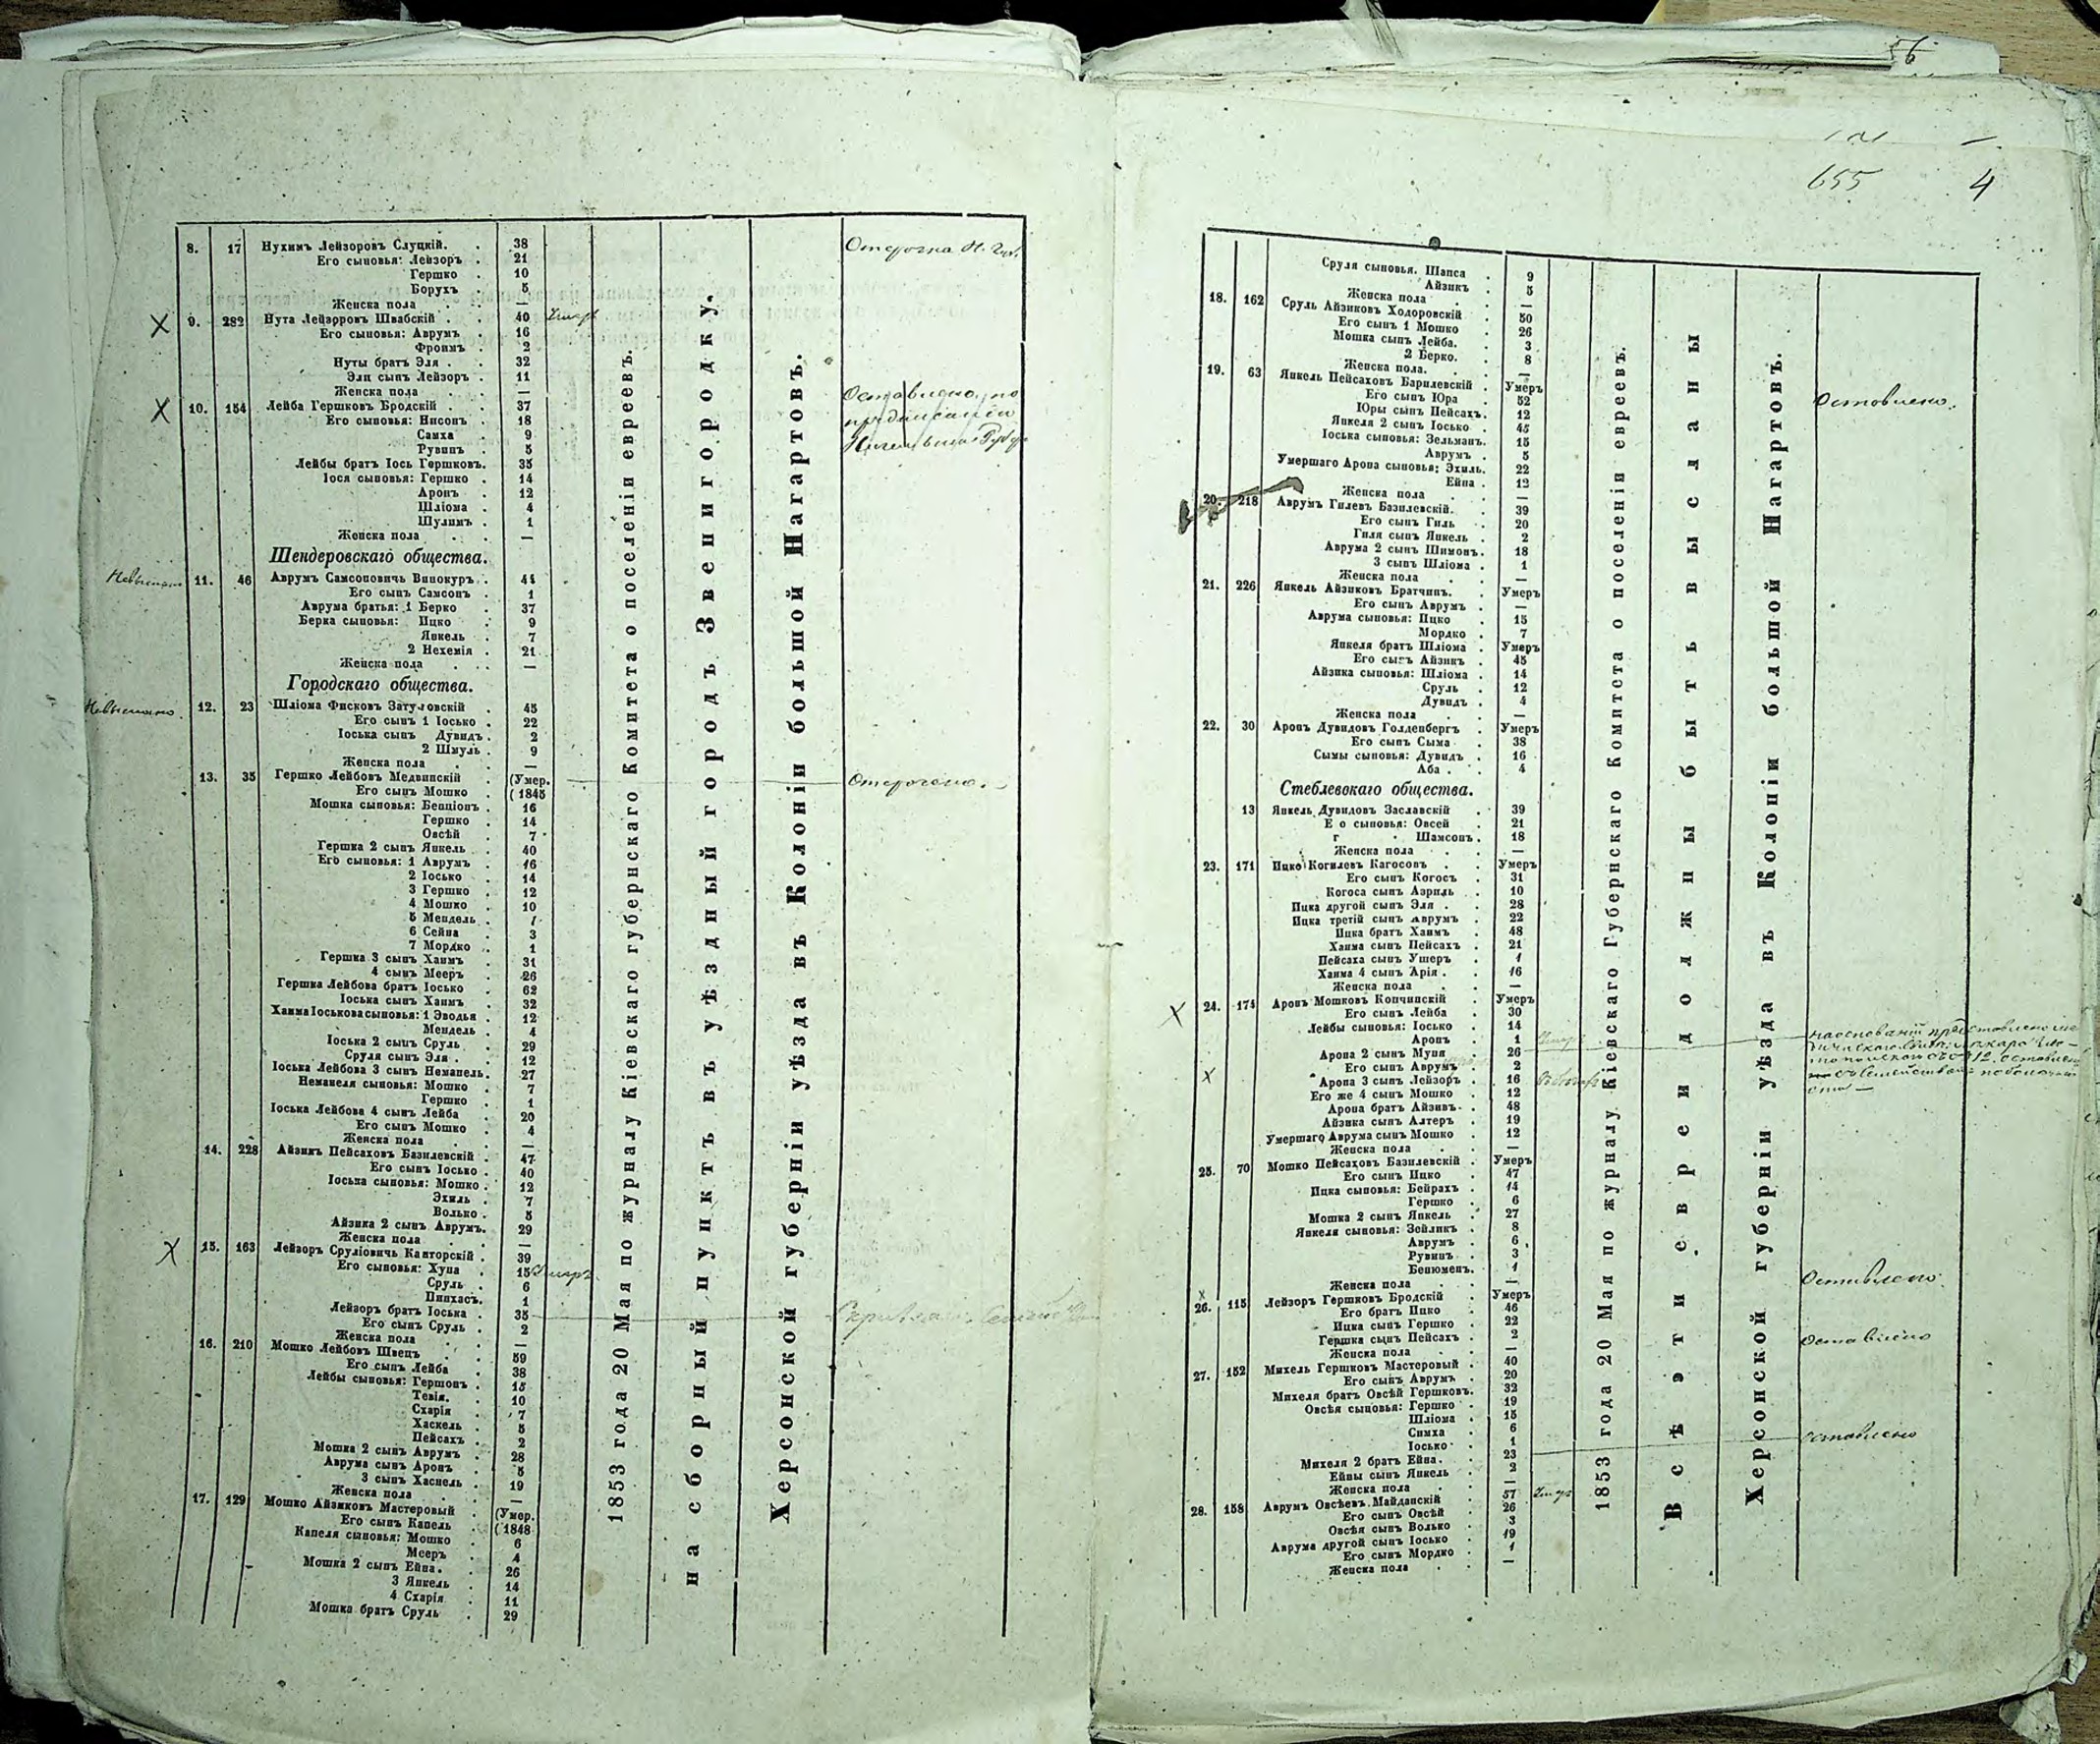 56
655
4
8. 17 Нухимъ Лейзоровъ Слуцкій. . 38
Его сыновья: Лейзоръ . 21
Гершко . 10
Борухъ . 5
Женска пола . . —
Х 9. 282 Нута Лейзоровъ Швабскій . . 40 Умеръ
Его сыновья: Аврумъ . 16
Фроимъ . 2
Нуты братъ Эля . . 32
Эли сынъ Лейзоръ . 11
Женска пола . . —
Х 10. 154 Лейба Гершковъ Бродскій . . 37
Его сыновья: Нисонъ . 18
Самха . 9
Рувинъ . 5
Лейбы братъ Іось Гершковъ. 35
Іося сыновья: Гершко . 14
Аронъ . 12
Шліома . 4
Шулимъ . 1
Женска пола . . —
Шендеровскаго общества.
11. 46 Аврумъ Самсоновичь Винокуръ . 44
Его сынъ Самсонъ . 1
Аврума братья: 1 Берко . 37
Берка сыновья: Ицко . 9
Янкель . 7
2 Нехемія . 21
Женска пола . . . —
Городскаго общества.
12. 23 Шліома Фисковъ Затуловскій . 45
Его сынъ 1 Іосько . 22
Іоська сынъ Дувидъ . 2
2 Шмуль . 9
Женска пола . . —
13. 35 Гершко Лейбовъ Медвинскій . (Умер.
Его сынъ Мошко . ( 1845
Мошка сыновья: Бенціонъ . 16
Гершко . 14
Овсѣй . 7
Гершка 2 сынъ Янкель . 40
Его сыновья: 1 Аврумъ . 16
2 Іосько . 14
3 Гершко . 12
4 Мошко . 10
5 Мендель .
6 Сейна . 3
7 Мордко . 1
Гершка 3 сынъ Хаимъ . 31
4 сынъ Мееръ . 26
Гершка Лейбова братъ Іосько . 62
Іоська сынъ Хаимъ . 32
Хаима Іоськова сыновья: 1 Эводья . 12
Мендель . 4
Іоська 2 сынъ Сруль . 29
Сруля сынъ Эля . . 12
Іоська Лейбова 3 сынъ Неманель. 27
Неманеля сыновья: Мошко . 7
Гершко . 1
Іоська Лейбова 4 сынъ Лейба . 20
Его сынъ Мошко . 4
Женска пола . . —
14. 228 Айзикъ Пейсаховъ Базилевскій . 47
Его сынъ Іосько . 40
Іоська сыновья: Мошко . 12
Эхиль . 7
Волько . 5
Айзика 2 сынъ Аврумъ. 29
Женска пола . . —
Х 15. 163 Лейзоръ Сруліовичь Канторскій . 39
Его сыновья: Хуна . 15 Умеръ
Сруль . 6
Пинхасъ. 1
Лейзоръ братъ Іоська . 35
Его сынъ Сруль . 2
Женска пола . . —
16. 210 Мошко Лейбовъ Швецъ . 59
Его сынъ Лейба . 38
Лейбы сыновья: Гершонъ . 15
Тевія. 10
Схарія . 7
Хаскель . 5
Пейсахъ . 2
Мошка 2 сынъ Аврумъ . 28
Аврума сынъ Аронъ . 5
3 сынъ Хаскель . 19
Женска пола . . —
17. 129 Мошко Айзиковъ Мастеровый . (Умер.
Его сынъ Капель . ( 1848
Капеля сыновья: Мошко . 6
Мееръ . 4
Мошка 2 сынъ Ейна. . 26
3 Янкель . 14
4 Схарія . 11
Мошка братъ Сруль . 29
1853 года 20 Мая по журналу Кіевскаго губернскаго Комитета о поселеніи евреевъ.
на сборный пунктъ въ уѣздный городъ Звенигородку.
Херсонской губерніи уѣзда въ Колоніи большой Нагартовъ.
Отсрочка Н. Губ.
Оставлено по
предписанію
Отсрочено.
Сруля сыновья. Шапса . 9
Айзикъ . 5
Женска пола . . —
18. 162 Сруль Айзиковъ Ходоровскій . 50
Его сынъ 1 Мошко . 26
Мошка сынъ Лейба. . 3
2 Берко. . 8
Женска пола. . —
19. 63 Янкель Пейсаховъ Барилевскій . Умеръ
Его сынъ Юра . 52
Юры сынъ Пейсахъ. 12
Янкеля 2 сынъ Іосько . 45
Іоська сыновья: Зельманъ. 15
Аврумъ . 5
Умершаго Арона сыновья: Эхиль. 22
Ейна . 12
Женска пола . . —
20. 218 Аврумъ Гилевъ Базилевскій. . 39
Его сынъ Гиль . 20
Гиля сынъ Янкель . 2
Аврума 2 сынъ Шимонъ. 18
3 сынъ Шліома . 1
Женска пола . . —
21. 226 Янкель Айзиковъ Братчинъ. . Умеръ
Его сынъ Аврумъ . —
Аврума сыновья: Ицко . 15
Мордко . 7
Янкеля братъ Шліома . Умеръ
Его сынъ Айзикъ . 45
Айзика сыновья: Шліома . 14
Сруль . 12
Дувидъ . 4
Женска пола . . —
22. 30 Аронъ Дувидовъ Голденбергъ . Умеръ
Его сынъ Сыма . 38
Сымы сыновья: Дувидъ . 16
Аба . . 4
Стеблевскаго общества.
13 Янкель Дувидовъ Заславскій . 39
Е о сыновья: Овсей . 21
г . Шамсонъ. 18
Женска пола . . —
23. 171 Ицко Когилевъ Кагосовъ . Умеръ
Его сынъ Когосъ . 31
Когоса сынъ Азриль . 10
Ицка другой сынъ Эля . . 28
Ицка третій сынъ Аврумъ . 22
Ицка братъ Хаимъ . 48
Хаима сынъ Пейсахъ . 21
Пейсаха сынъ Ушеръ . 1
Хаима 4 сынъ Арія . . 16
Женска пола . . —
Х 24. 174 Аронъ Мошковъ Копчинскій . Умеръ
Его сынъ Лейба . 30
Лейбы сыновья: Іосько . 14
Аронъ . 1
Арона 2 сынъ Муня . 26
Его сынъ Аврумъ . 2
Х Арона 3 сынъ Лейзоръ . 16
Его же 4 сынъ Мошко . 12
Арона братъ Айзикъ . . 48
Айзика сынъ Алтеръ . 19
Умершаго Аврума сынъ Мошко . 12
Женска пола . . —
25. 70 Мошко Пейсаховъ Базилевскій . Умеръ
Его сынъ Ицко . 47
Ицка сыновья: Бейрахъ . 14
Гершко . 6
Мошка 2 сынъ Янкель . 27
Янкеля сыновья: Зейликъ . 8
Аврумъ . 6
Рувинъ . 3
Бенюменъ. 1
Женска пола . . —
х 26. 115 Лейзоръ Гершковъ Бродскій . Умеръ
Его братъ Ицко . 46
Ицка сынъ Гершко . 22
Гершка сынъ Пейсахъ . 2
Женска пола . . —
27. 152 Михель Гершковъ Мастеровый . 40
Его сынъ Аврумъ . 20
Михеля братъ Овсѣй Гершковъ. 32
Овсѣя сыновья: Гершко . 19
Шліома . 15
Симха . 6
Іосько . 1
Михеля 2 братъ Ейна. . 23
Ейны сынъ Янкель . 2
Женска пола . . —
28. 158 Аврумъ Овсѣевъ Майданскій . 57 Умеръ
Его сынъ Овсѣй . 26
Овсѣя сынъ Волько . 3
Аврума другой сынъ Іосько . 19
Его сынъ Мордко . 1
Женска пола . . —
1853 года 20 Мая по журналу Кіевскаго Губернскаго Комитета о поселеніи евреевъ.
Всѣ эти евреи должны быть высланы
Херсонской губерніи уѣзда въ Колоніи большой Нагартовъ.
Оставлено.
Оставлено
Оставлено
оставлено